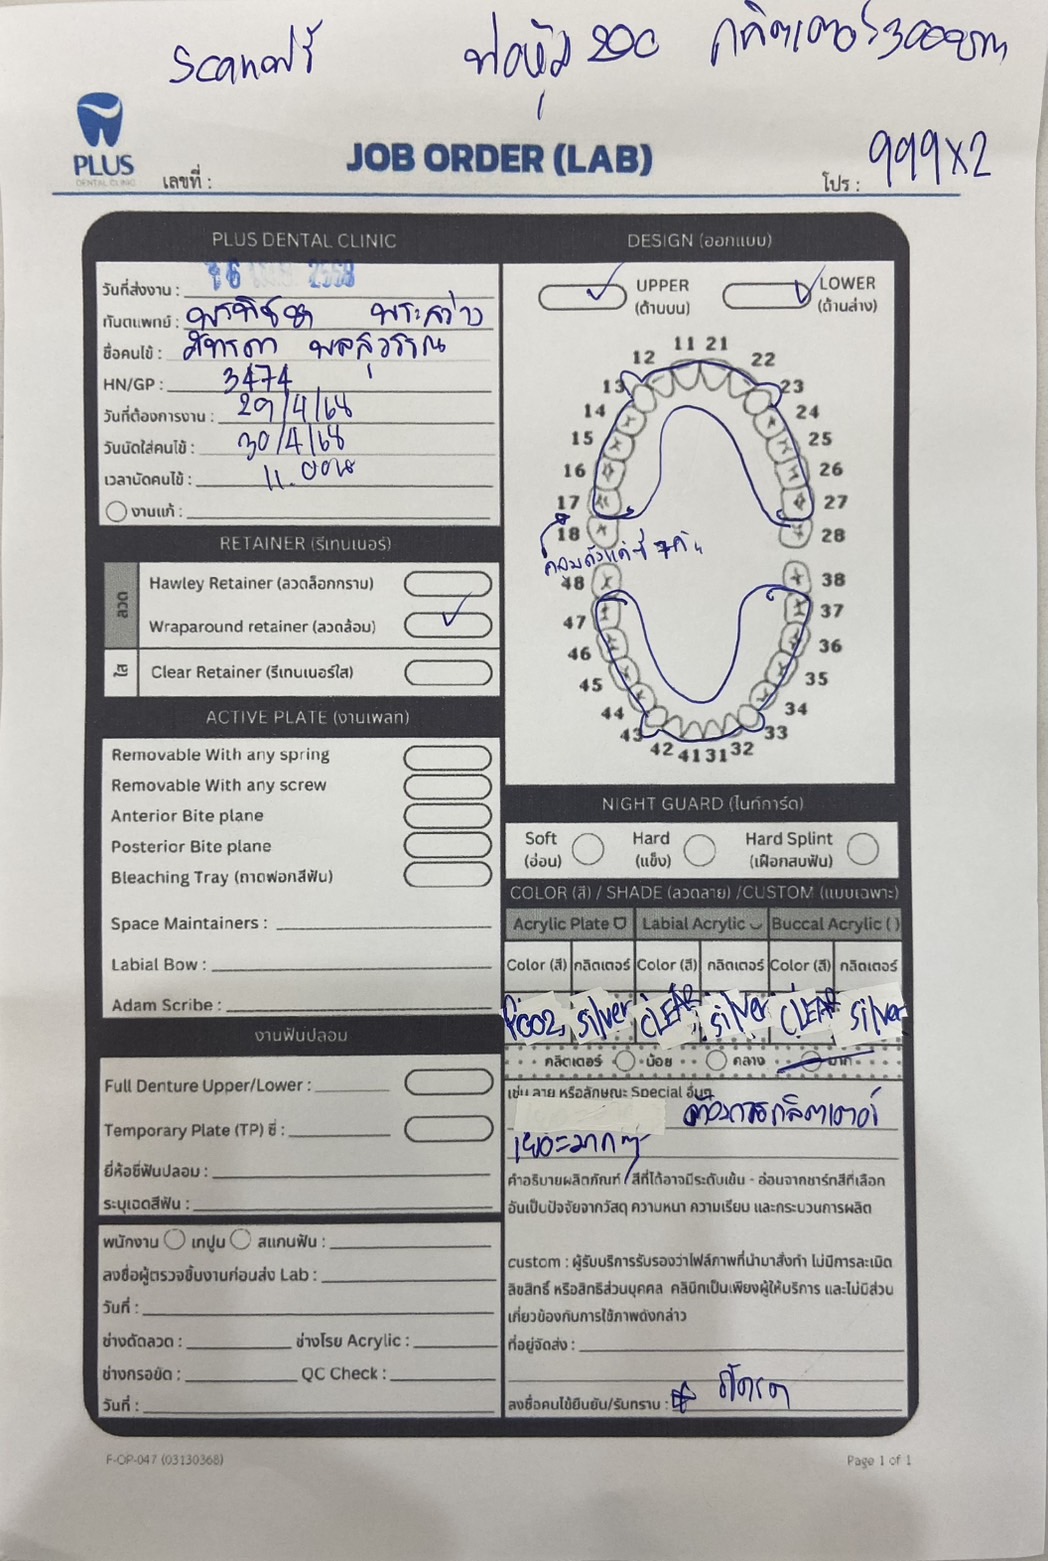 Scanฟรี 200 กลิตเตอร์300บาท
PLUS
DENTAL CLINIC
เลขที่ :
JOB ORDER (LAB)
โปร : 999x2
PLUS DENTAL CLINIC
วันที่ส่งงาน : 16 2568
ทันตแพทย์ :
ชื่อคนไข้ :
HN/GP : 3474
วันที่ต้องการงาน : 29/4/68
วันนัดใส่คนไข้ : 30/4/68
เวลานัดคนไข้ : 11.00น
งานแก้ :
RETAINER (รีเทนเนอร์)
ลวด
Hawley Retainer (ลวดล็อกกราม)
Wraparound retainer (ลวดล้อม)
ใส
Clear Retainer (รีเทนเนอร์ใส)
ACTIVE PLATE (งานเพลท)
Removable With any spring
Removable With any screw
Anterior Bite plane
Posterior Bite plane
Bleaching Tray (ถาดฟอกสีฟัน)
Space Maintainers :
Labial Bow :
Adam Scribe :
งานฟันปลอม
Full Denture Upper/Lower :
Temporary Plate (TP) ซี่ :
ยี่ห้อซี่ฟันปลอม :
ระบุเฉดสีฟัน :
พนักงาน เทปูน สแกนฟัน :
ลงชื่อผู้ตรวจชิ้นงานก่อนส่ง Lab :
วันที่ :
ช่างดัดลวด : ช่างโรย Acrylic :
ช่างกรอขัด : QC Check :
วันที่ :
DESIGN (ออกแบบ)
UPPER (ด้านบน) LOWER (ด้านล่าง)
11 21
12 22
13 23
14 24
15 25
16 26
17 27
18 28
48 38
47 37
46 36
45 35
44 34
43 33
42 41 31 32
NIGHT GUARD (ไนท์การ์ด)
Soft (อ่อน) Hard (แข็ง) Hard Splint (เฝือกสบฟัน)
COLOR (สี) / SHADE (ลวดลาย) /CUSTOM (แบบเฉพาะ)
Acrylic Plate Labial Acrylic Buccal Acrylic ( )
Color (สี) กลิตเตอร์ Color (สี) กลิตเตอร์ Color (สี) กลิตเตอร์
P002 silver CLEAR silver CLEAR silver
กลิตเตอร์ น้อย กลาง มาก
เช่น ลาย หรือลักษณะ Special อื่นๆ
ต้องการกลิตเตอร์
เยอะมากๆ
คำอธิบายผลิตภัณฑ์ สีที่ได้อาจมีระดับเข้ม - อ่อนจากชาร์ทสีที่เลือก
อันเป็นปัจจัยจากวัสดุ ความหนา ความเรียบ และกระบวนการผลิต
custom : ผู้รับบริการรับรองว่าไฟล์ภาพที่นำมาสั่งทำ ไม่มีการละเมิด
ลิขสิทธิ์ หรือสิทธิส่วนบุคคล คลินิกเป็นเพียงผู้ให้บริการ และไม่มีส่วน
เกี่ยวข้องกับการใช้ภาพดังกล่าว
ที่อยู่จัดส่ง :
ลงชื่อคนไข้ยืนยัน/รับทราบ :
F-OP-047 (03130368)
Page 1 of 1